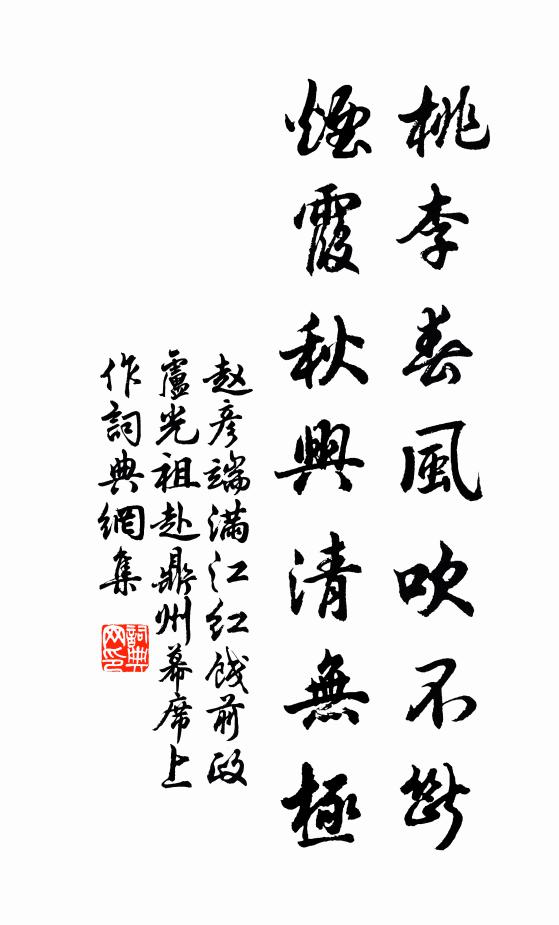 桃李春風吹不斷
煙霞秋興清無極
赵彦端滿江红餞前政
盧光祖赴鼎州幕席上
作詞典網集
詞典网印